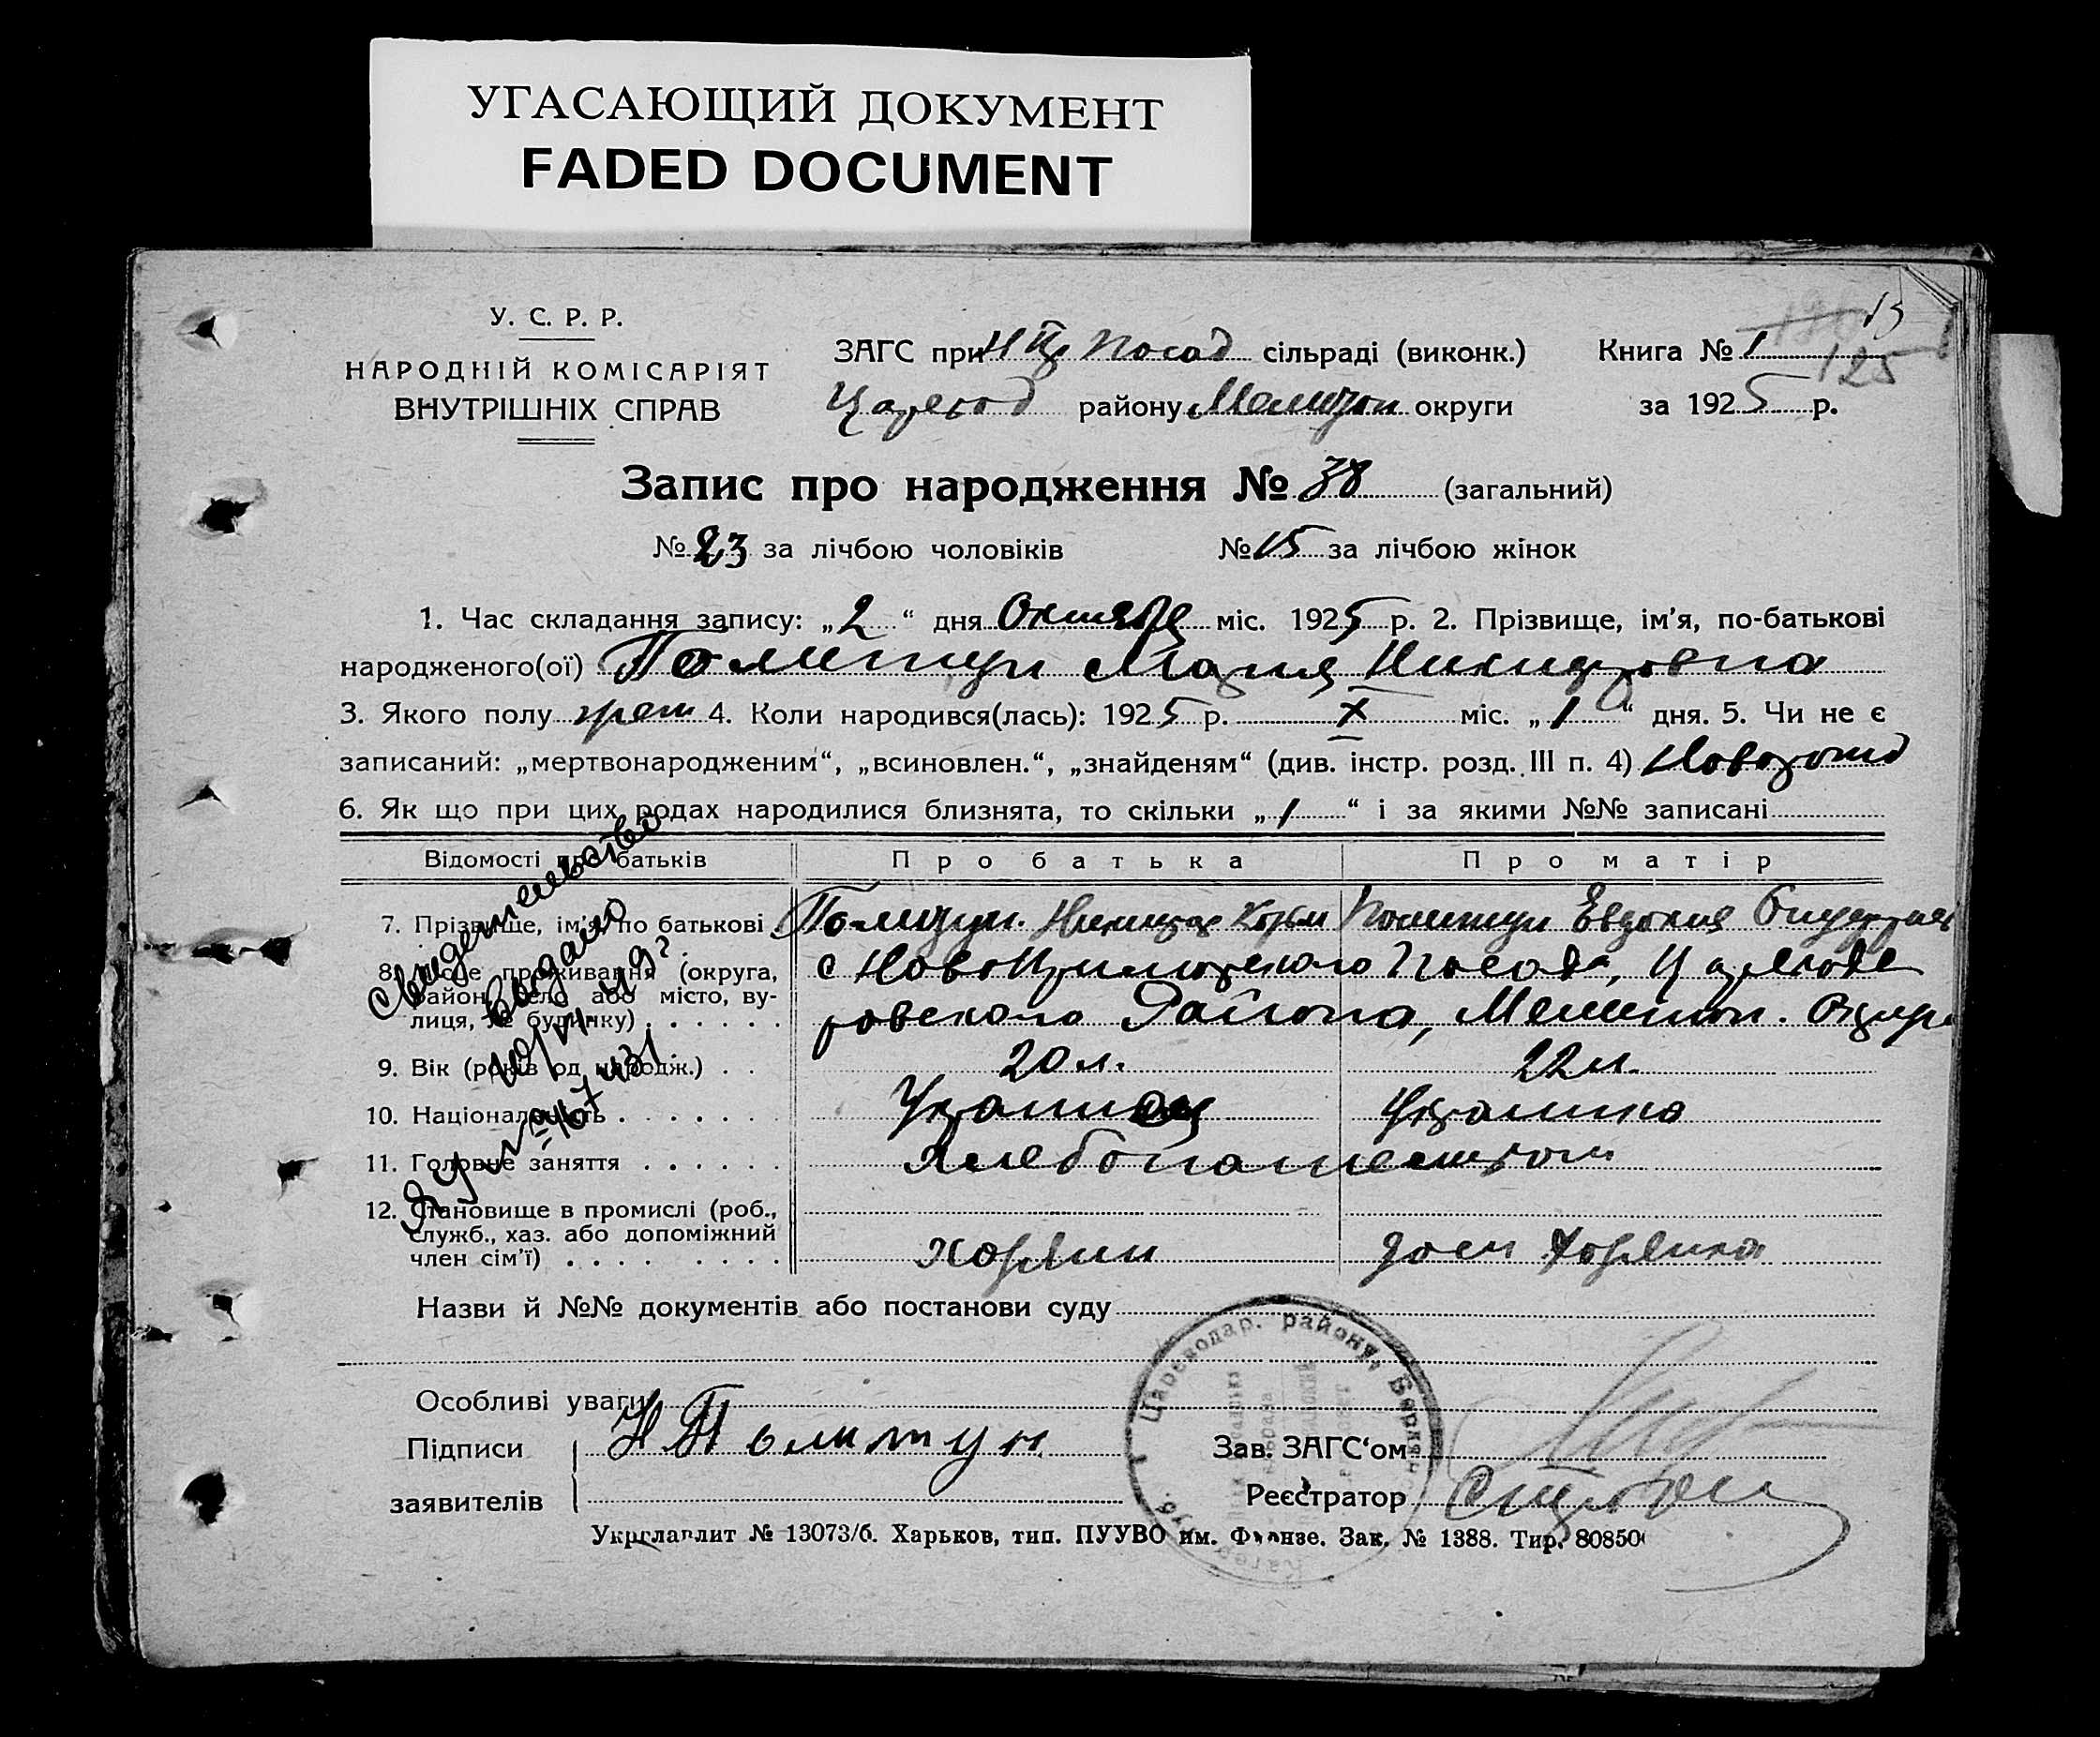 УГАСАЮЩИЙ ДОКУМЕНТ
FADED DOCUMENT
У. С. Р. Р.
НАРОДНІЙ КОМІСАРІЯТ
ВНУТРІШНІХ СПРАВ
ЗАГС при Посад сільраді (виконк.)
Царевод району Мелитоп округи
Книга № 1
125
за 1925 р.
Запис про народження № 38 (загальний)
№ 23 за лічбою чоловіків № 15 за лічбою жінок
1. Час складання запису: „2“ дня Октября міс. 1925 р. 2. Прізвище, ім'я, по-батькові
народженого(ої) Полтун Мария Никифоровна
3. Якого полу жен 4. Коли народився(лась): 1925 р. X міс. „1“ дня. 5. Чи не є
записаний: „мертвонародженим“, „всиновлен.“, „знайденям“ (див. інстр. розд. III п. 4) Новорожд
6. Як що при цих родах народилися близнята, то скільки „1“ і за якими №№ записані
Відомості про батьків Про батька Про матір
7. Прізвище, ім'я, по батькові Евдокия
8. Місце проживання (округа,
район, село або місто, ву-
лиця, № будинку)
с Посада, Царевода
ровского Района, Мелитоп.
9. Вік (років од народж.) 20 л. 22 л.
10. Національність Украинец Украинка
11. Головне заняття Хлебопашеством
12. Становище в промислі (роб.,
служб., хаз. або допоміжний
член сім'ї)
Хозяин дом хозяйка
Свидетельство
выдано
Назви й №№ документів або постанови суду
Особливі уваги
Підписи
заявителів
Н Полтун
Зав. ЗАГС'ом
Реєстратор
Цареводар. району, Бердян
Укрглавлит № 13073/б. Харьков, тип. ПУУВО им. Фрунзе. Зак. № 1388. Тир. 80850